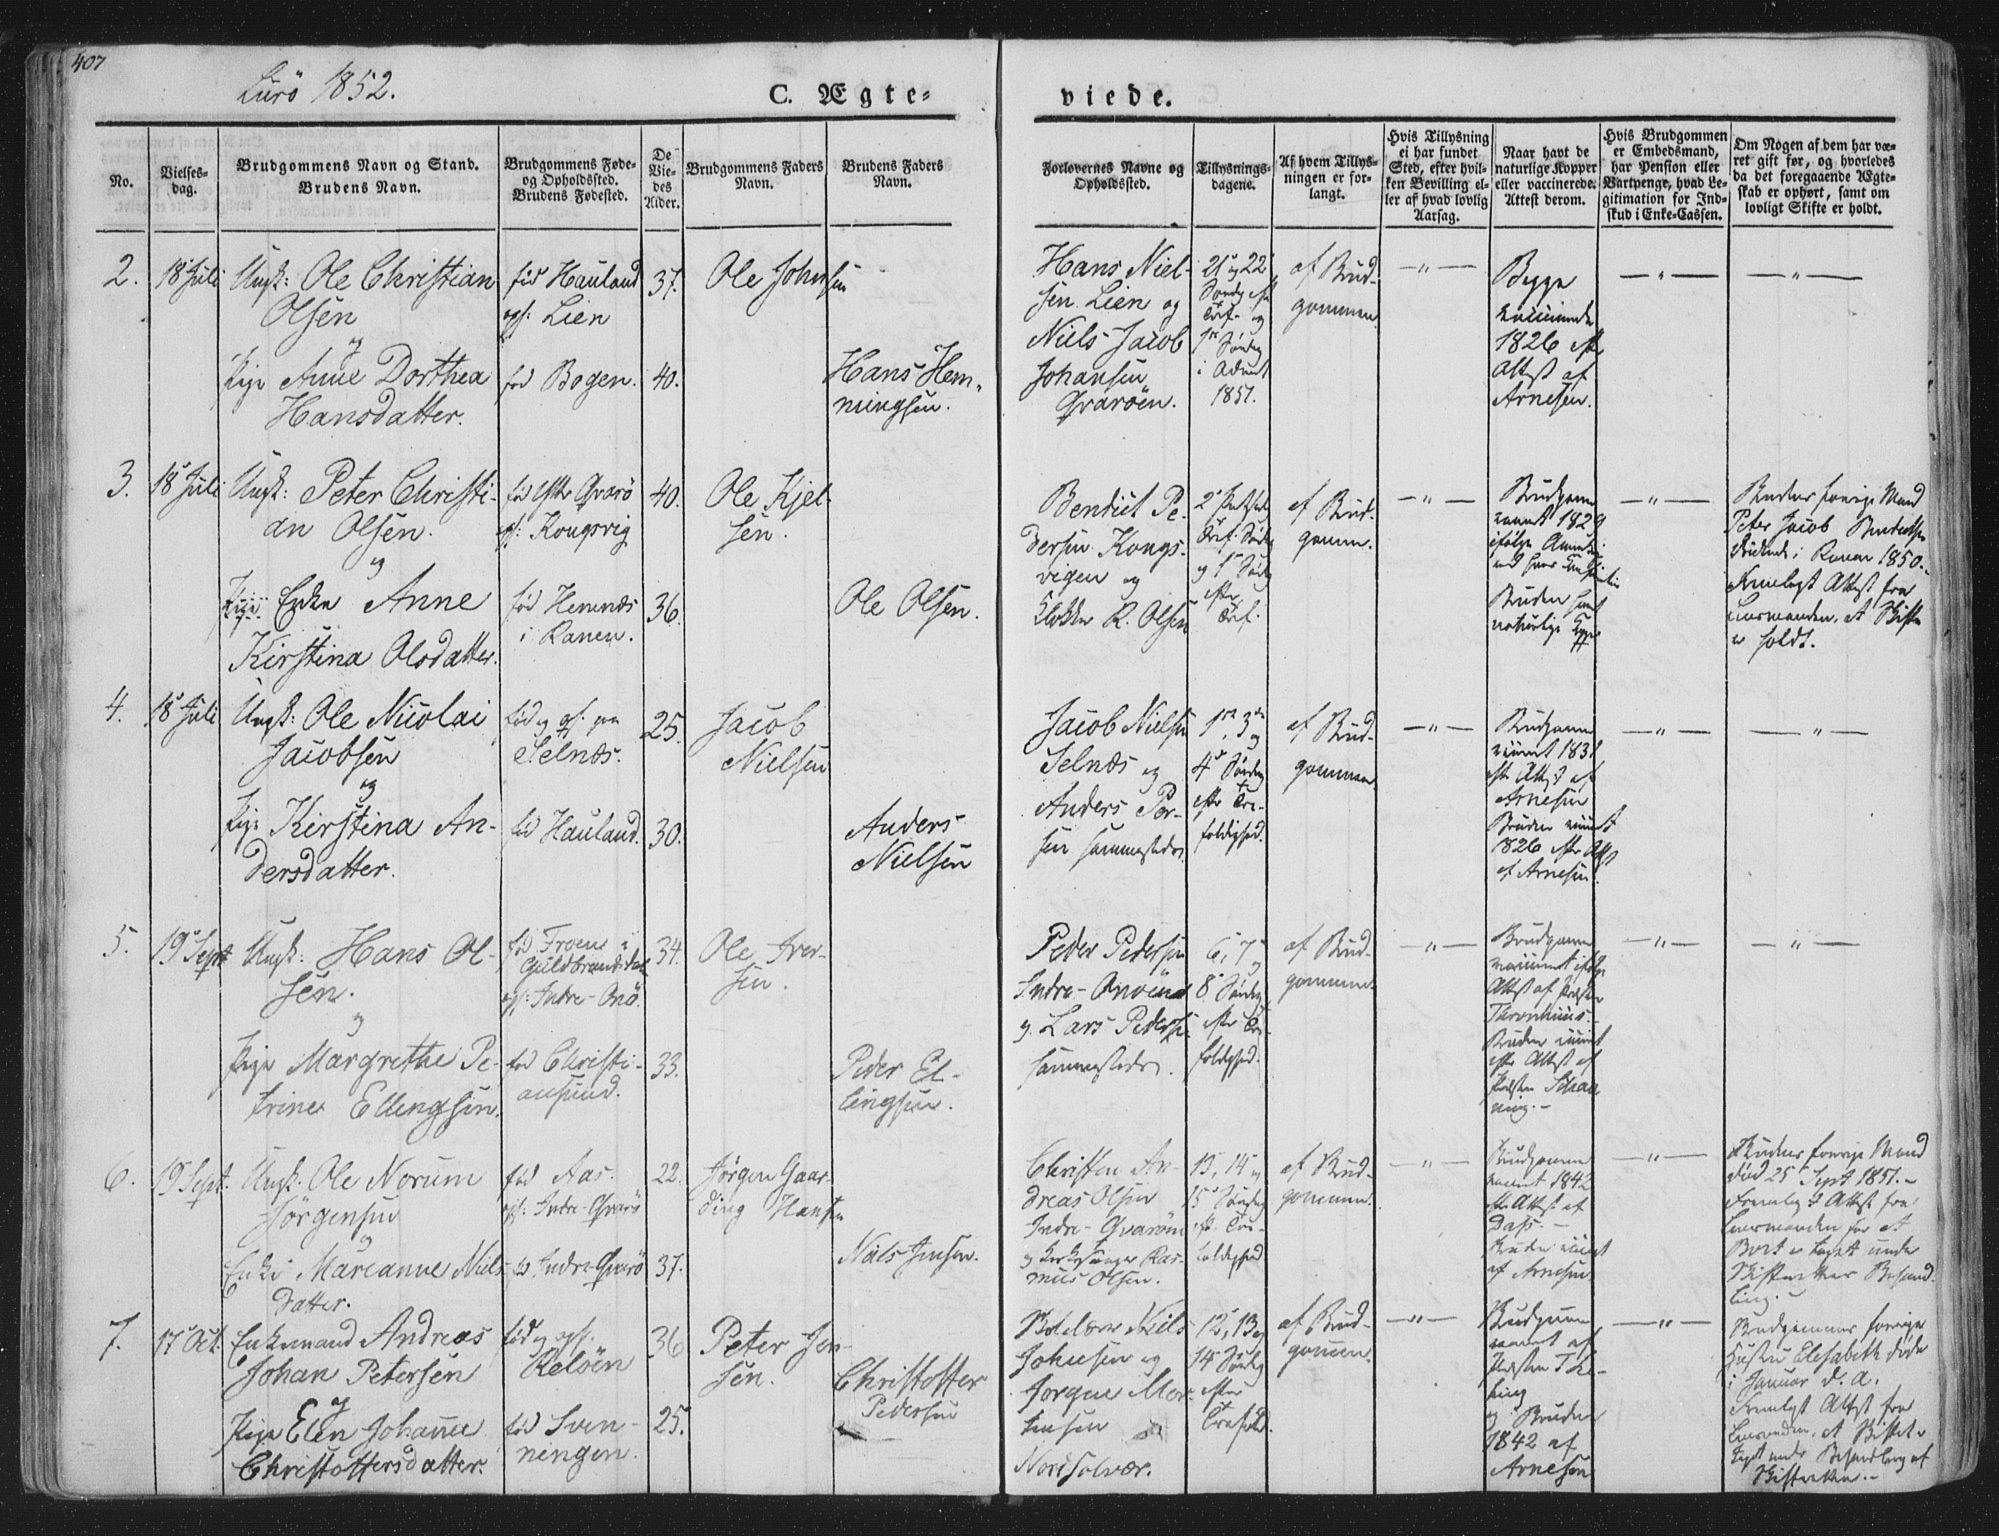 407
Lurö 1852.
C. Ægte-
viede.
No.
Vielses-
dag.
Brudgommens Navn og Stand.
Brudens Navn.
Brudgommens Føde-
og Opholdssted.
Brudens Fødested.
De
Vie-
des
Alder.
Brudgommens Faders
Navn.
Brudens Faders
Navn.
Forlovernes Navne og
Opholdssted.
Tillysnings-
dagene.
Af hvem Tillys-
ningen er for-
langt.
Hvis Tillysning
ei har fundet
Sted, efter hvil-
ken Bevilling el-
ler af hvad lovlig
Aarsag.
Naar havt de
naturlige Kopper
eller vaccinerede.
Attest derom.
Hvis Brudgommen
er Embedsmand,
har Pension eller
Vartpenge, hvad Le-
gitimation for Ind-
skud i Enke-Cassen.
Om Nogen af dem har væ-
ret gift før, og hvorledes
da det foregaaende Ægte-
skab er ophørt, samt om
lovligt Skifte er holdt.
2.
18 Juli
Ungk: Ole Christian
Olsen
og
Pige Anne Dorthea
Hansdatter.
fød Hauland
ops: Lien
fød Bogen.
37.
40.
Ole Johnsen
Hans Hem-
mingsen.
Hans Niel-
sen Lien og
Niels Jacob
Johansen
Qvarøen.
21 og 22
Søndg eft
Tref. og
1ste Søndg
i Advent
1851.
af Brud-
gommen.
-"-
Begge
vaccinerede
1826 eft
Attest af
Arnesen.
-"-
-"-
3.
18 Juli
Ungk: Peter Christi-
an Olsen.
og
Enke Anne
Kirstina Olsdatter.
fød Ytre Qvarö
ops: Kongsvig
fød Hemnæs
i Ranen.
40.
36.
Ole Kjel-
sen.
Ole Olsen.
Bendict Pe-
dersen Kongs-
vigen og
Klokker R. Olsen
og 1 Søndg
efter
Tref.
af Brud-
gommen.
-"-
Brudgommen
vaccint 1829
ifølge
Bruden havt
naturlige Kopper
-"-
Brudens forrige Mand
Peter Jacob
døde i Ranen 1850.-
Fremlagt Attest fra
Lensmanden, at Skifte
er holdt.
4.
18 Juli
Ungk: Ole Nicolai
Jacobsen
og
Pige Kirstina An-
dersdatter.
fød og ops. paa
Selnæs.
fød Hauland.
25.
30.
Jacob
Nielsen
Anders
Nielsen
Jacob Nielsen
Selnæs og
Anders Per-
sen sammesteds.
1ste, 3die og
4 Søndg
efter Tre-
foldighed.
af Brud-
gommen.
-"-
Brudgommen
vaccint 1831
eft Attest af
Arnesen
Bruden vaccint
1826 efter Attst
af Arnesen.
-"-
-"-
5.
19 Sept
Ungk: Hans Ol-
sen.
og
Pige Margrethe Pe-
trine Ellingsen.
fød Froen i
Guldbrandsdal
ops: Indre-Onö.
fød Christi-
ansund.
34.
33.
Ole Iver-
sen.
Peder El-
lingsen.
Peder Pedersen
Indre-Onöen
og Lars Pedersen
sammesteds.
6, 7 og
8 Søndg
efter Tre-
foldighed.
af Brud-
gommen.
-"-
Brudgommen
vaccineret ifølge
Attest af Præsten
Bruden vaccint
efter Attest af
Præsten
-"-
-"-
6.
19 Sept.
Ungk: Ole Norum
Jörgensen
og
Enke Marianne Niels-
datter.
fød Aas.
ops: Indre-Qvarö
fd Indre-Qvarö
22.
37.
Jörgen Gaar-
ding Hansen
Niels Jensen.
Christen An-
dreas Olsen
Indre-Qvaröen
og Kirkesanger Ras-
mus Olsen.
13, 14 og
15 Søndag
eft. Tre-
foldighed.
af Brud-
gommen.
-"-
Brudgommen
vaccint 1842
eft Attest af
Dass.-
Bruden vaccint
af Arnesen
-"-
Brudens forrige Mand
død 25 Sept 1851.-
Fremlagt Attest fra
Lensmanden for at
Boet er taget under
Skifterettens Behand-
ling.-
7.
17 Oct.
Enkemand Andreas
Johan Petersen
og
Pige Elen Johanne
Christoffersdatter.
fød og ops:
Reløen
fød Sven-
ningen.
36
25.
Peter Jen-
sen.
Christoffer
Pedersen
Niels
Johnsen og
Jørgen Mor-
tensen
Nord Solvær.
12, 13 og
14 Søndg
efter
Trefold.
af Brud-
gommen.
-"-
Brudgommen
vaccint af
Præsten
og Bruden
1842 af
Arnesen
-"-
Brudgommens forrige
Hustru Elesabeth døde
i Januar d. A.
Fremlagt Attest fra
Lensmanden, at Skiftet er
taget under Behandling af
Skifteretten.-